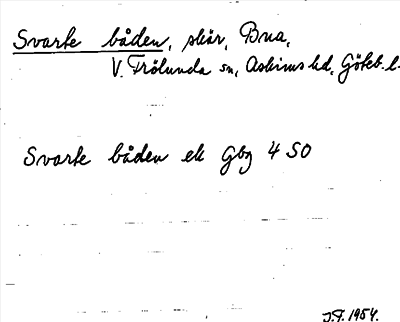 Svarte båden, skär, Bua,
V. Frölunda sn, Askims hd, Göteb. l.
Svarte båden ek Gbg 4 SO
J.F. 1954.